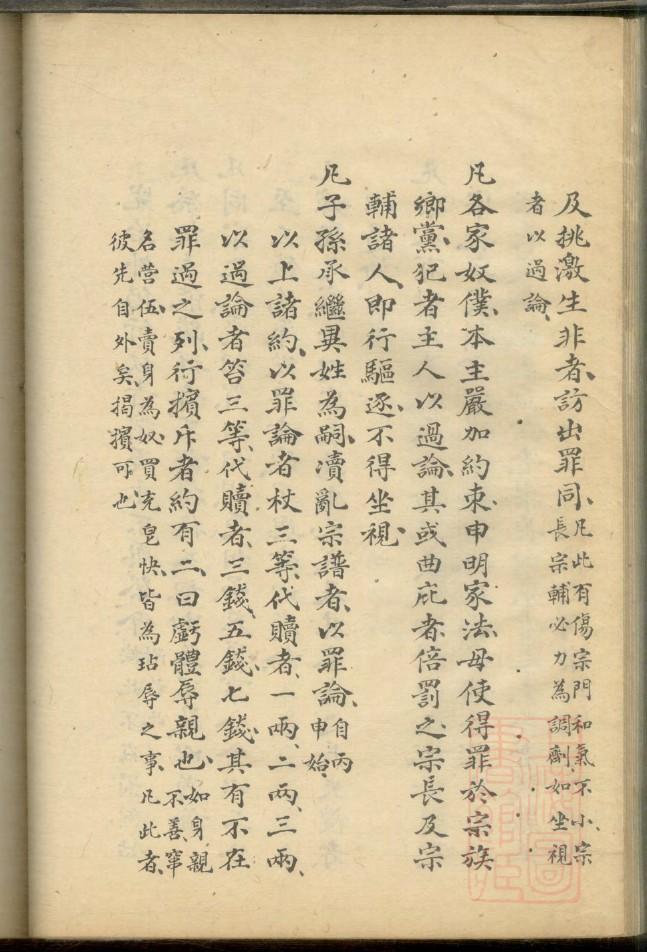 及挑激生非者、訪出罪同、凡此有傷宗門和氣不小、宗長宗輔必力為調劑、如坐視
者以過論、
凡各家奴僕、本主嚴加約束、申明家法、毋使得罪於宗族
鄉黨、犯者主人以過論、其或曲庇者、倍罰之、宗長及宗
輔諸人、即行驅逐、不得坐視、
凡子孫承繼異姓為嗣、瀆亂宗譜者、以罪論、自丙申始、
以上諸約、以罪論者杖三等、代贖者、一兩、二兩、三兩、
以過論者笞三等、代贖者、三錢、五錢、七錢、其有不在
罪過之列、行擯斥者、約有二、曰虧體辱親也、如身親不善、窜
名營伍、賣身為奴、買充皂快、皆為玷辱之事、凡此者、
彼先自外矣、揭擯可也